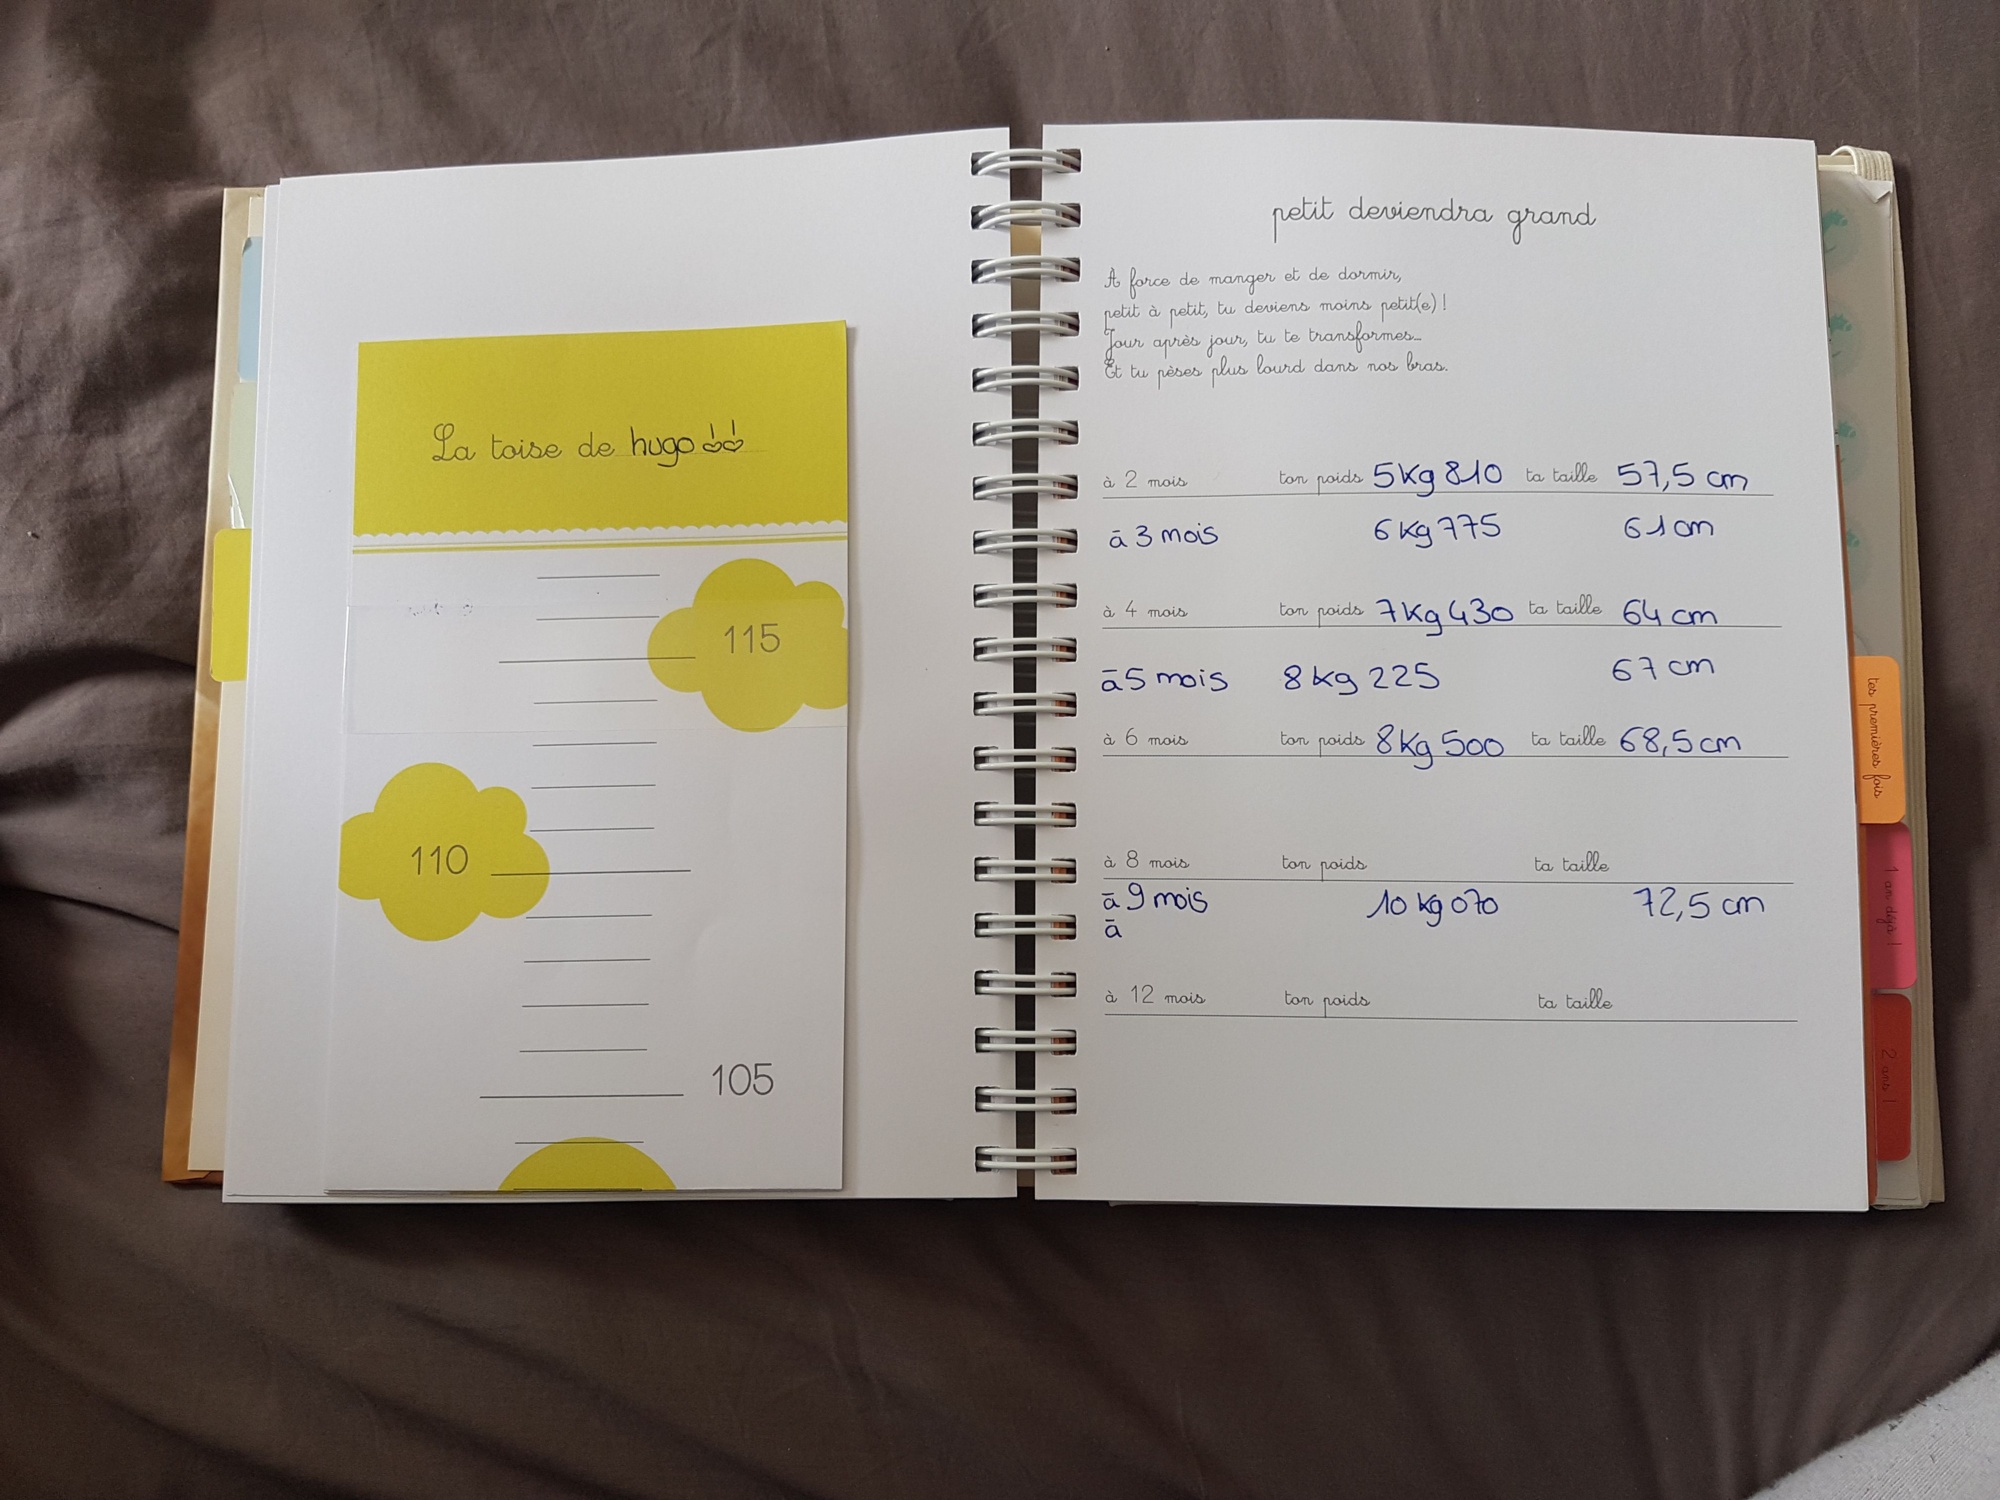 La toise de hugo
115
110
105
petit deviendra grand
À force de manger et de dormir,
petit à petit, tu deviens moins petit(e) !
Jour après jour, tu te transformes...
Et tu pèses plus lourd dans nos bras.
à 2 mois ton poids 5kg 810 ta taille 57,5 cm
à 3 mois 6kg 775 61 cm
à 4 mois ton poids 7kg 430 ta taille 64 cm
à 5 mois 8kg 225 67 cm
à 6 mois ton poids 8kg 500 ta taille 68,5 cm
à 8 mois ton poids ta taille
à 9 mois 10 kg 070 72,5 cm
à
à 12 mois ton poids ta taille
tes premières fois
1 an déjà !
2 ans !